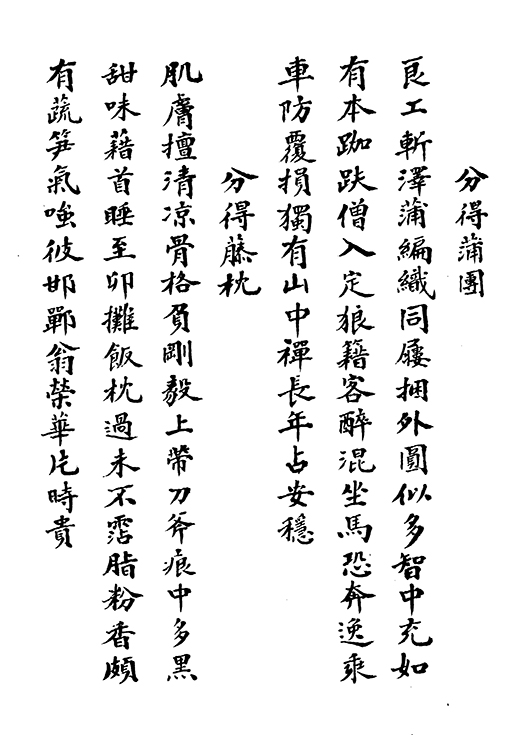 分得蒲團
良工斬澤蒲編織同屨捆外圓似多智中充如
有本跏趺僧入定狼籍客醉混坐馬恐奔逸乘
車防覆損獨有山中禪長年占安穩
分得藤枕
肌膚擅清凉骨格負剛毅上帶刀斧痕中多黑
甜味藉首睡至卯攤飯枕過未不霑脂粉香頗
有蔬笋氣嗤彼邯鄲翁榮華片時貴